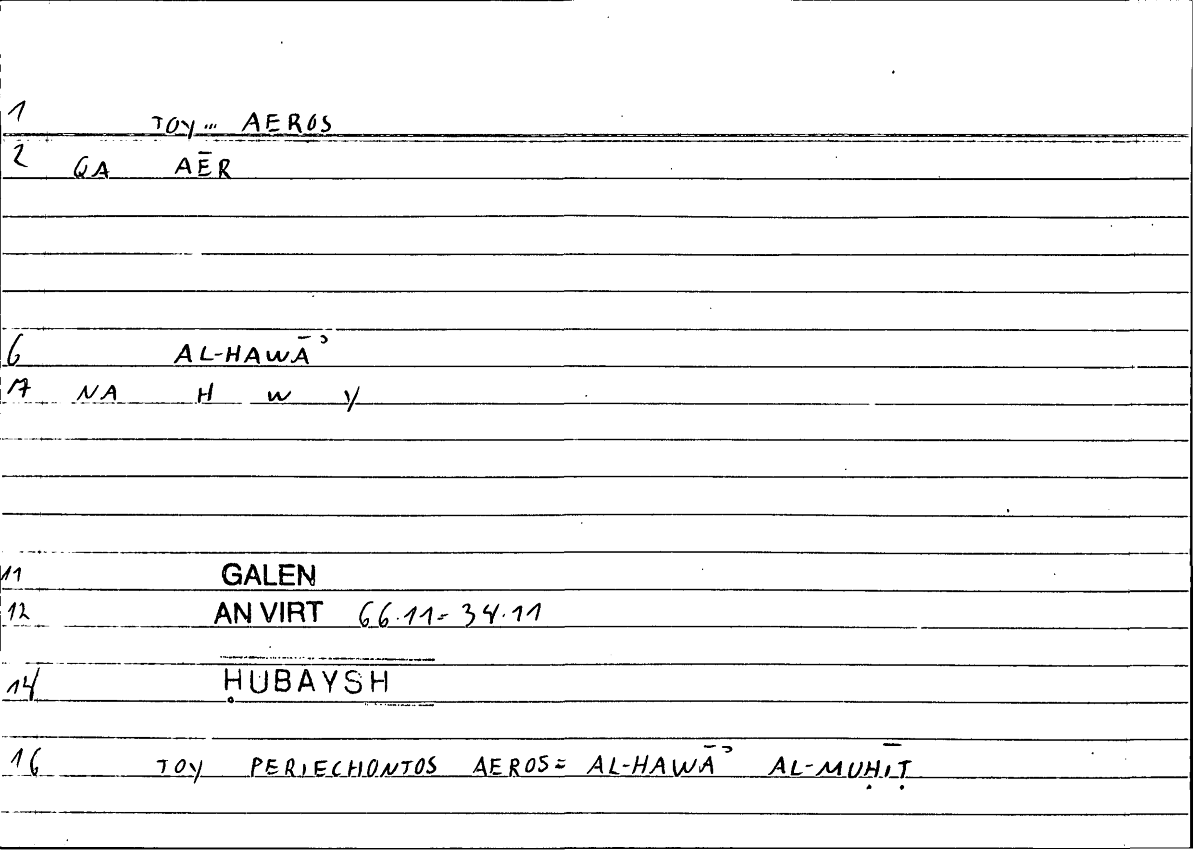 1 TOY... AEROS
2 QA AĒR
6 AL-HAWĀʾ
17 NA H W Y
11 GALEN
12 AN VIRT 66.11=34.11
14 ḤUBAYSH
16 TOY PERIECHONTOS AEROS= AL-HAWĀʾ AL-MUḤĪṬ